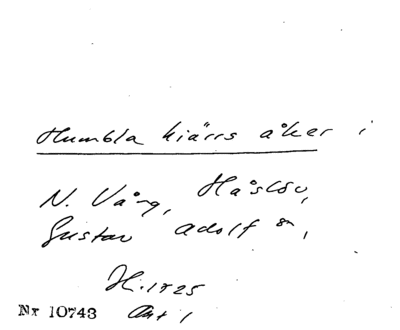 Humbla kiärrs åker i
N. Vång, Håslöv,
Gustav Adolf sn,
Nr 10743 Akt 1